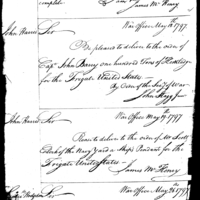 complet
James McHenry
War Office May 18th 1797
John Harris Sir
Be pleased to deliver to the order of
Capt John Barry one hundred Tons of
for the Frigate United States —
By Order of the Secy of War
John Stagg Jr
War Office May 19 1797
John Harris Sir
Please to deliver to the order of Mr Scott
Clerk of the Navy Yard a Ships for the
Frigate United States —
James McHenry
War Office May 26th 1797
Sir